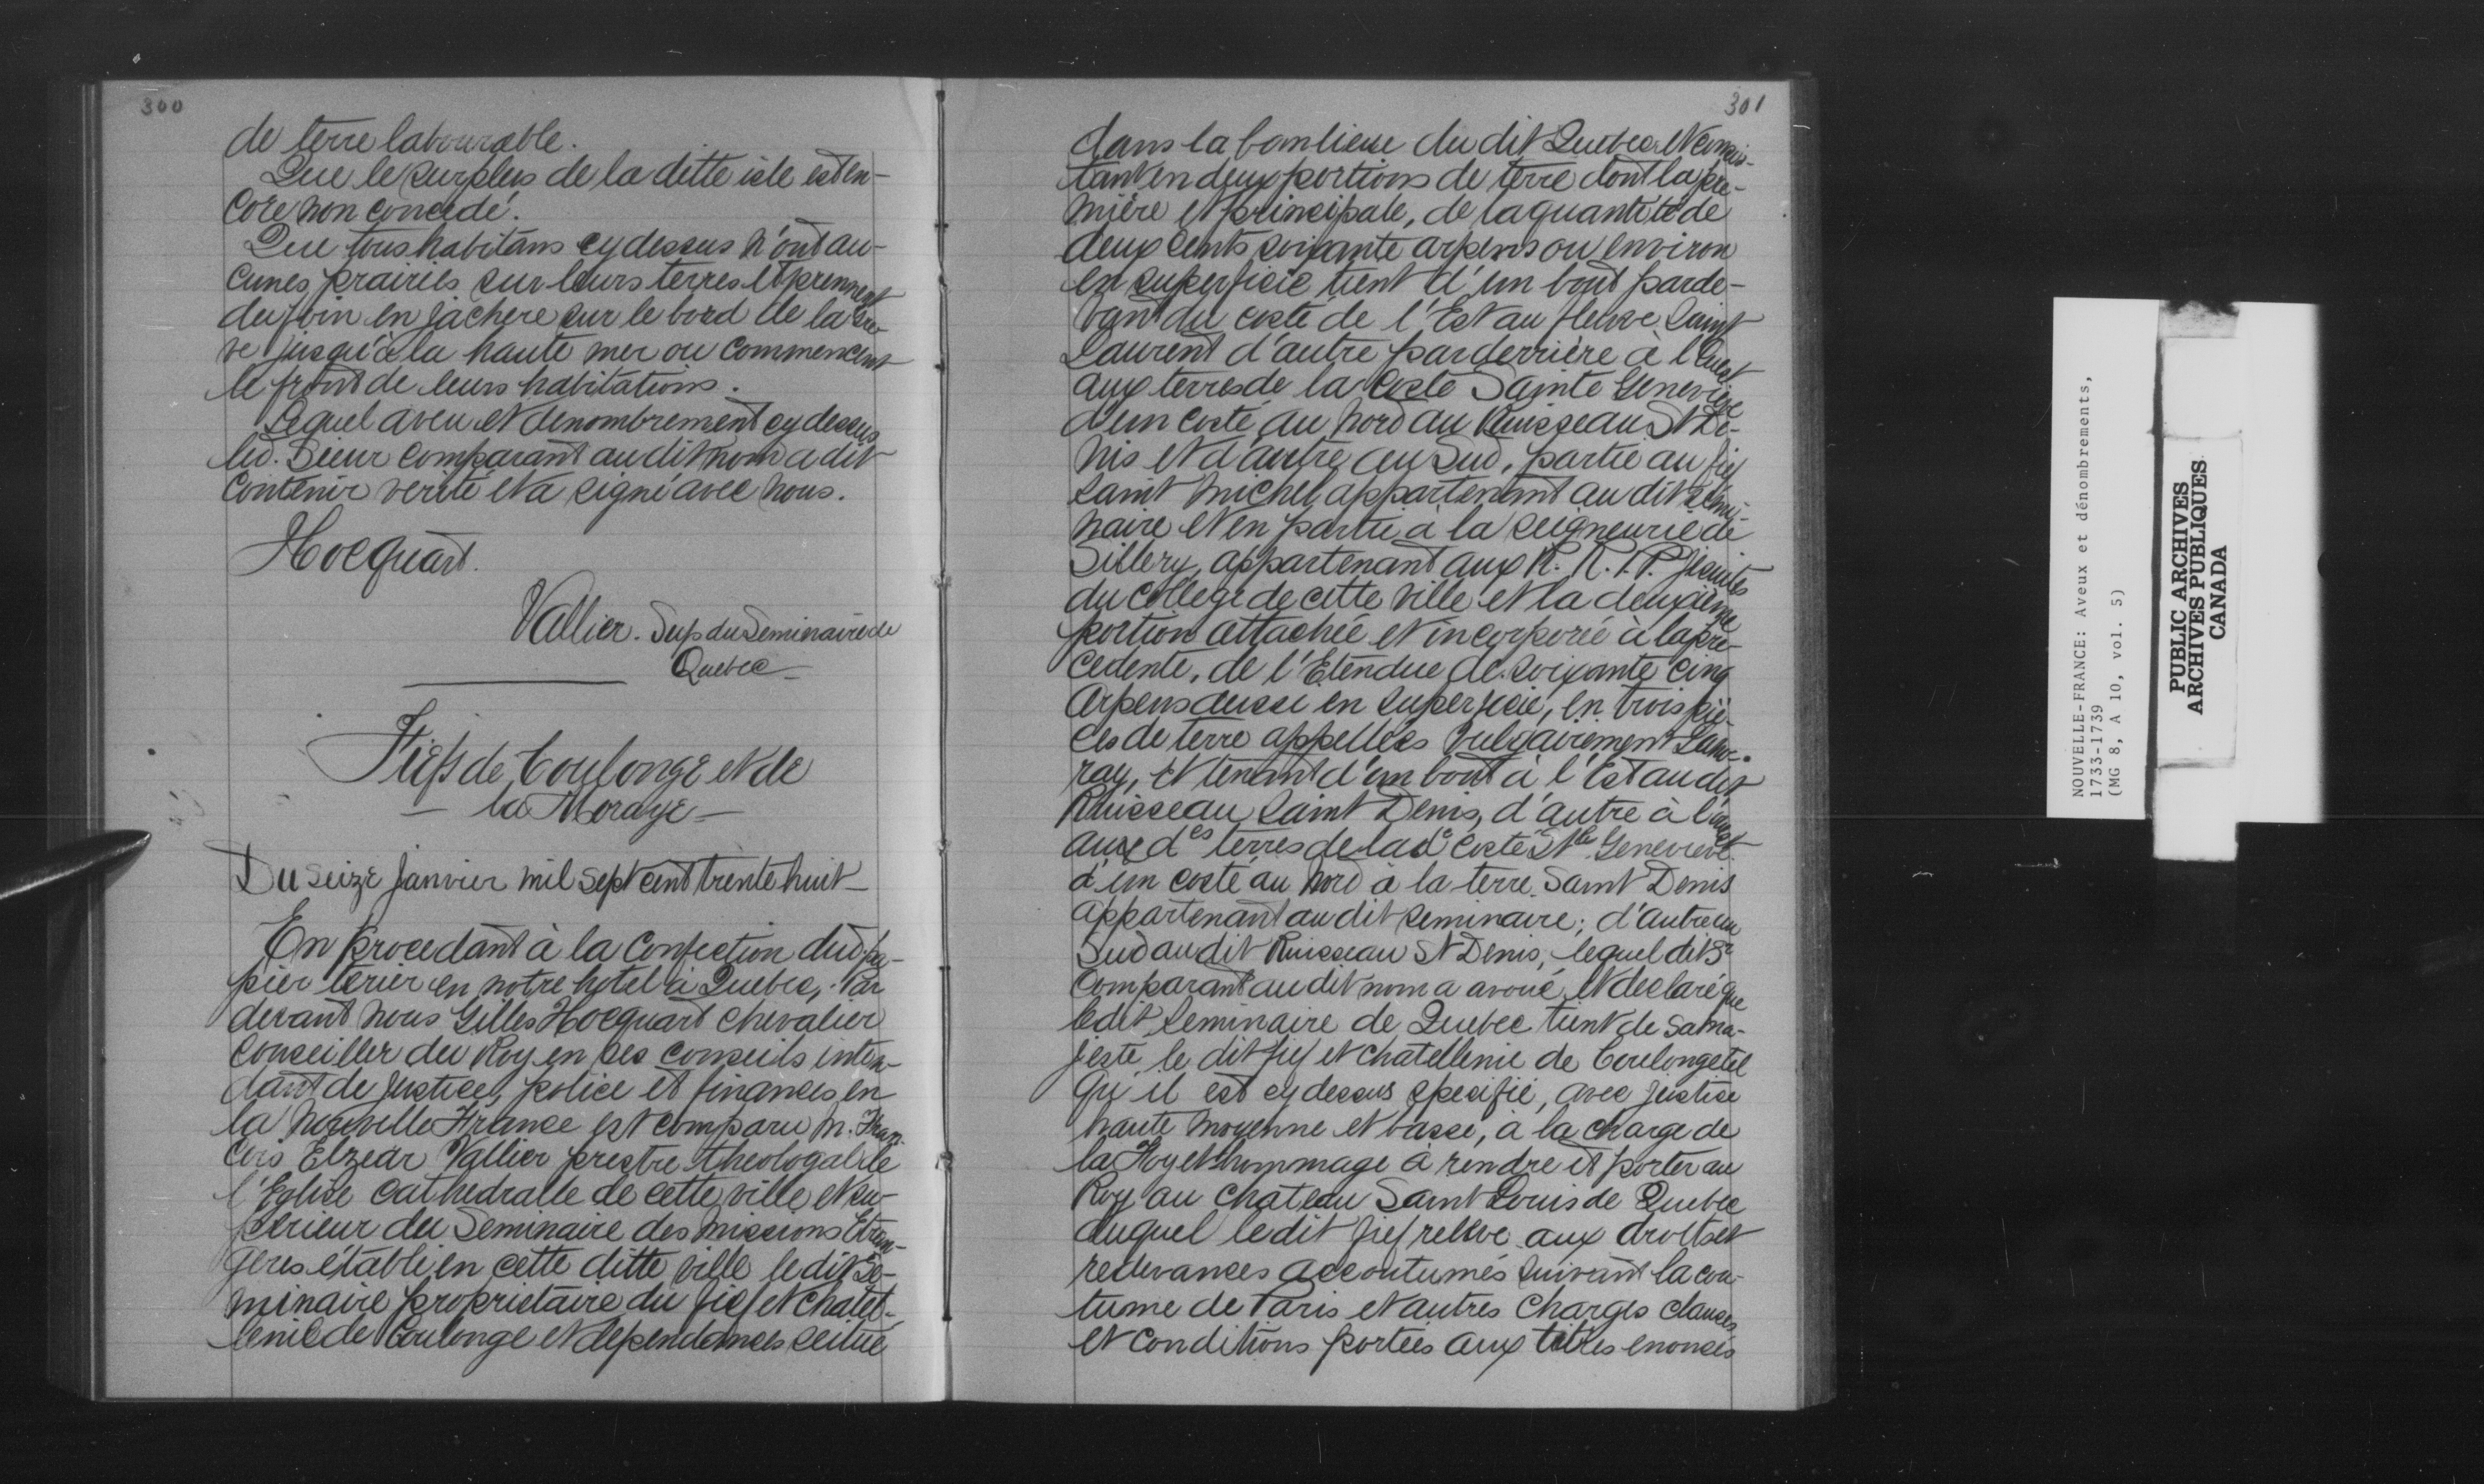 300
de terre labourable.
Que le surplus de la ditte isle est en-
core non concedé.
Que tous habitans cy dessus n'ont au-
cunes prairies sur leurs terres et prennent
du foin en jachere sur le bord de la Gre-
ve jusqu'à la haute mer ou commencent
le front de leurs habitations.
Lequel aveu et denombrement cy dessus
led. Sieur comparant au dit nom a dit
contenir verité et a signé avec nous.
Hocquart.
Vallier. Sup du Seminaire de
Quebec
Fiefs de Coulonge et de
la Moraye
Du seize janvier mil sept cent trente huit
En procedant à la Confection dud. pa-
pier terier en notre hotel à Quebec, Par
devant nous Gilles Hocquart chevalier
Conseiller du Roy en ses conseils inten-
dant de justice, police et finances en
la Nouvelle France est comparu M. Fran-
çois Elzear Vallier prestre theologal de
l'Eglise Cathedralle de cette ville et su-
perieur du Seminaire des Missions Etran-
geres établi en cette ditte ville le dit Se-
minaire proprietaire du fief et chatel-
lenie de Coulonge et dependances scitué
301
dans la banlieue du dit Quebec et consis-
tant en deux portions de terre dont la pre-
mière et principale, de la quantité de
deux cents soixante arpens ou environ
en superficie tient d'un bout parde-
vant du costé de l'Est au fleuve Saint
Laurent d'autre par derrière à l'Ouest
aux terres de la Coste Sainte Genevieve
d'un costé au Nord au Ruisseau St De-
nis et d'autre au Sud, partie au fief
Saint Michel appartenant au dit Semi-
naire et en partie à la seigneurie de
Sillery, appartenant aux R. R. P.P. Jesuites
du College de cette ville et la deuxième
portion attachée et incorporée à la pre-
cedente, de l'Etendue de soixante cinq
Arpens aussi en superficie, en trois piè-
ces de terre appellées vulgairement Lamo-
ray, et tenant d'un bout à l'Est au dit
Ruisseau Saint Denis, d'autre à l'ouest
aux des terres de la de Coste Ste Genevieve
d'un costé au Nord à la terre Saint Denis
appartenant au dit Seminaire; d'autre au
Sud au dit Ruisseau St Denis, lequel dit Sr
Comparant au dit nom a avoué et declaré que
le dit Seminaire de Quebec tient de Sa Ma-
jesté, le dit fief et chatellenie de Coulonge tel
qu'il est cy dessus specifié, avec justice
haute moyenne et basse, à la charge de
la Foy et hommage à rendre et porter au
Roy au chateau Saint Louis de Quebec
duquel le dit fief releve aux droits et
redevances accoutumés suivant la cou-
tume de Paris et autres charges clauses
et conditions portées aux titres enoncés
NOUVELLE-FRANCE: Aveux et dénombrements,
1733-1739
(MG 8, A 10, vol. 5)
PUBLIC ARCHIVES
ARCHIVES PUBLIQUES
CANADA